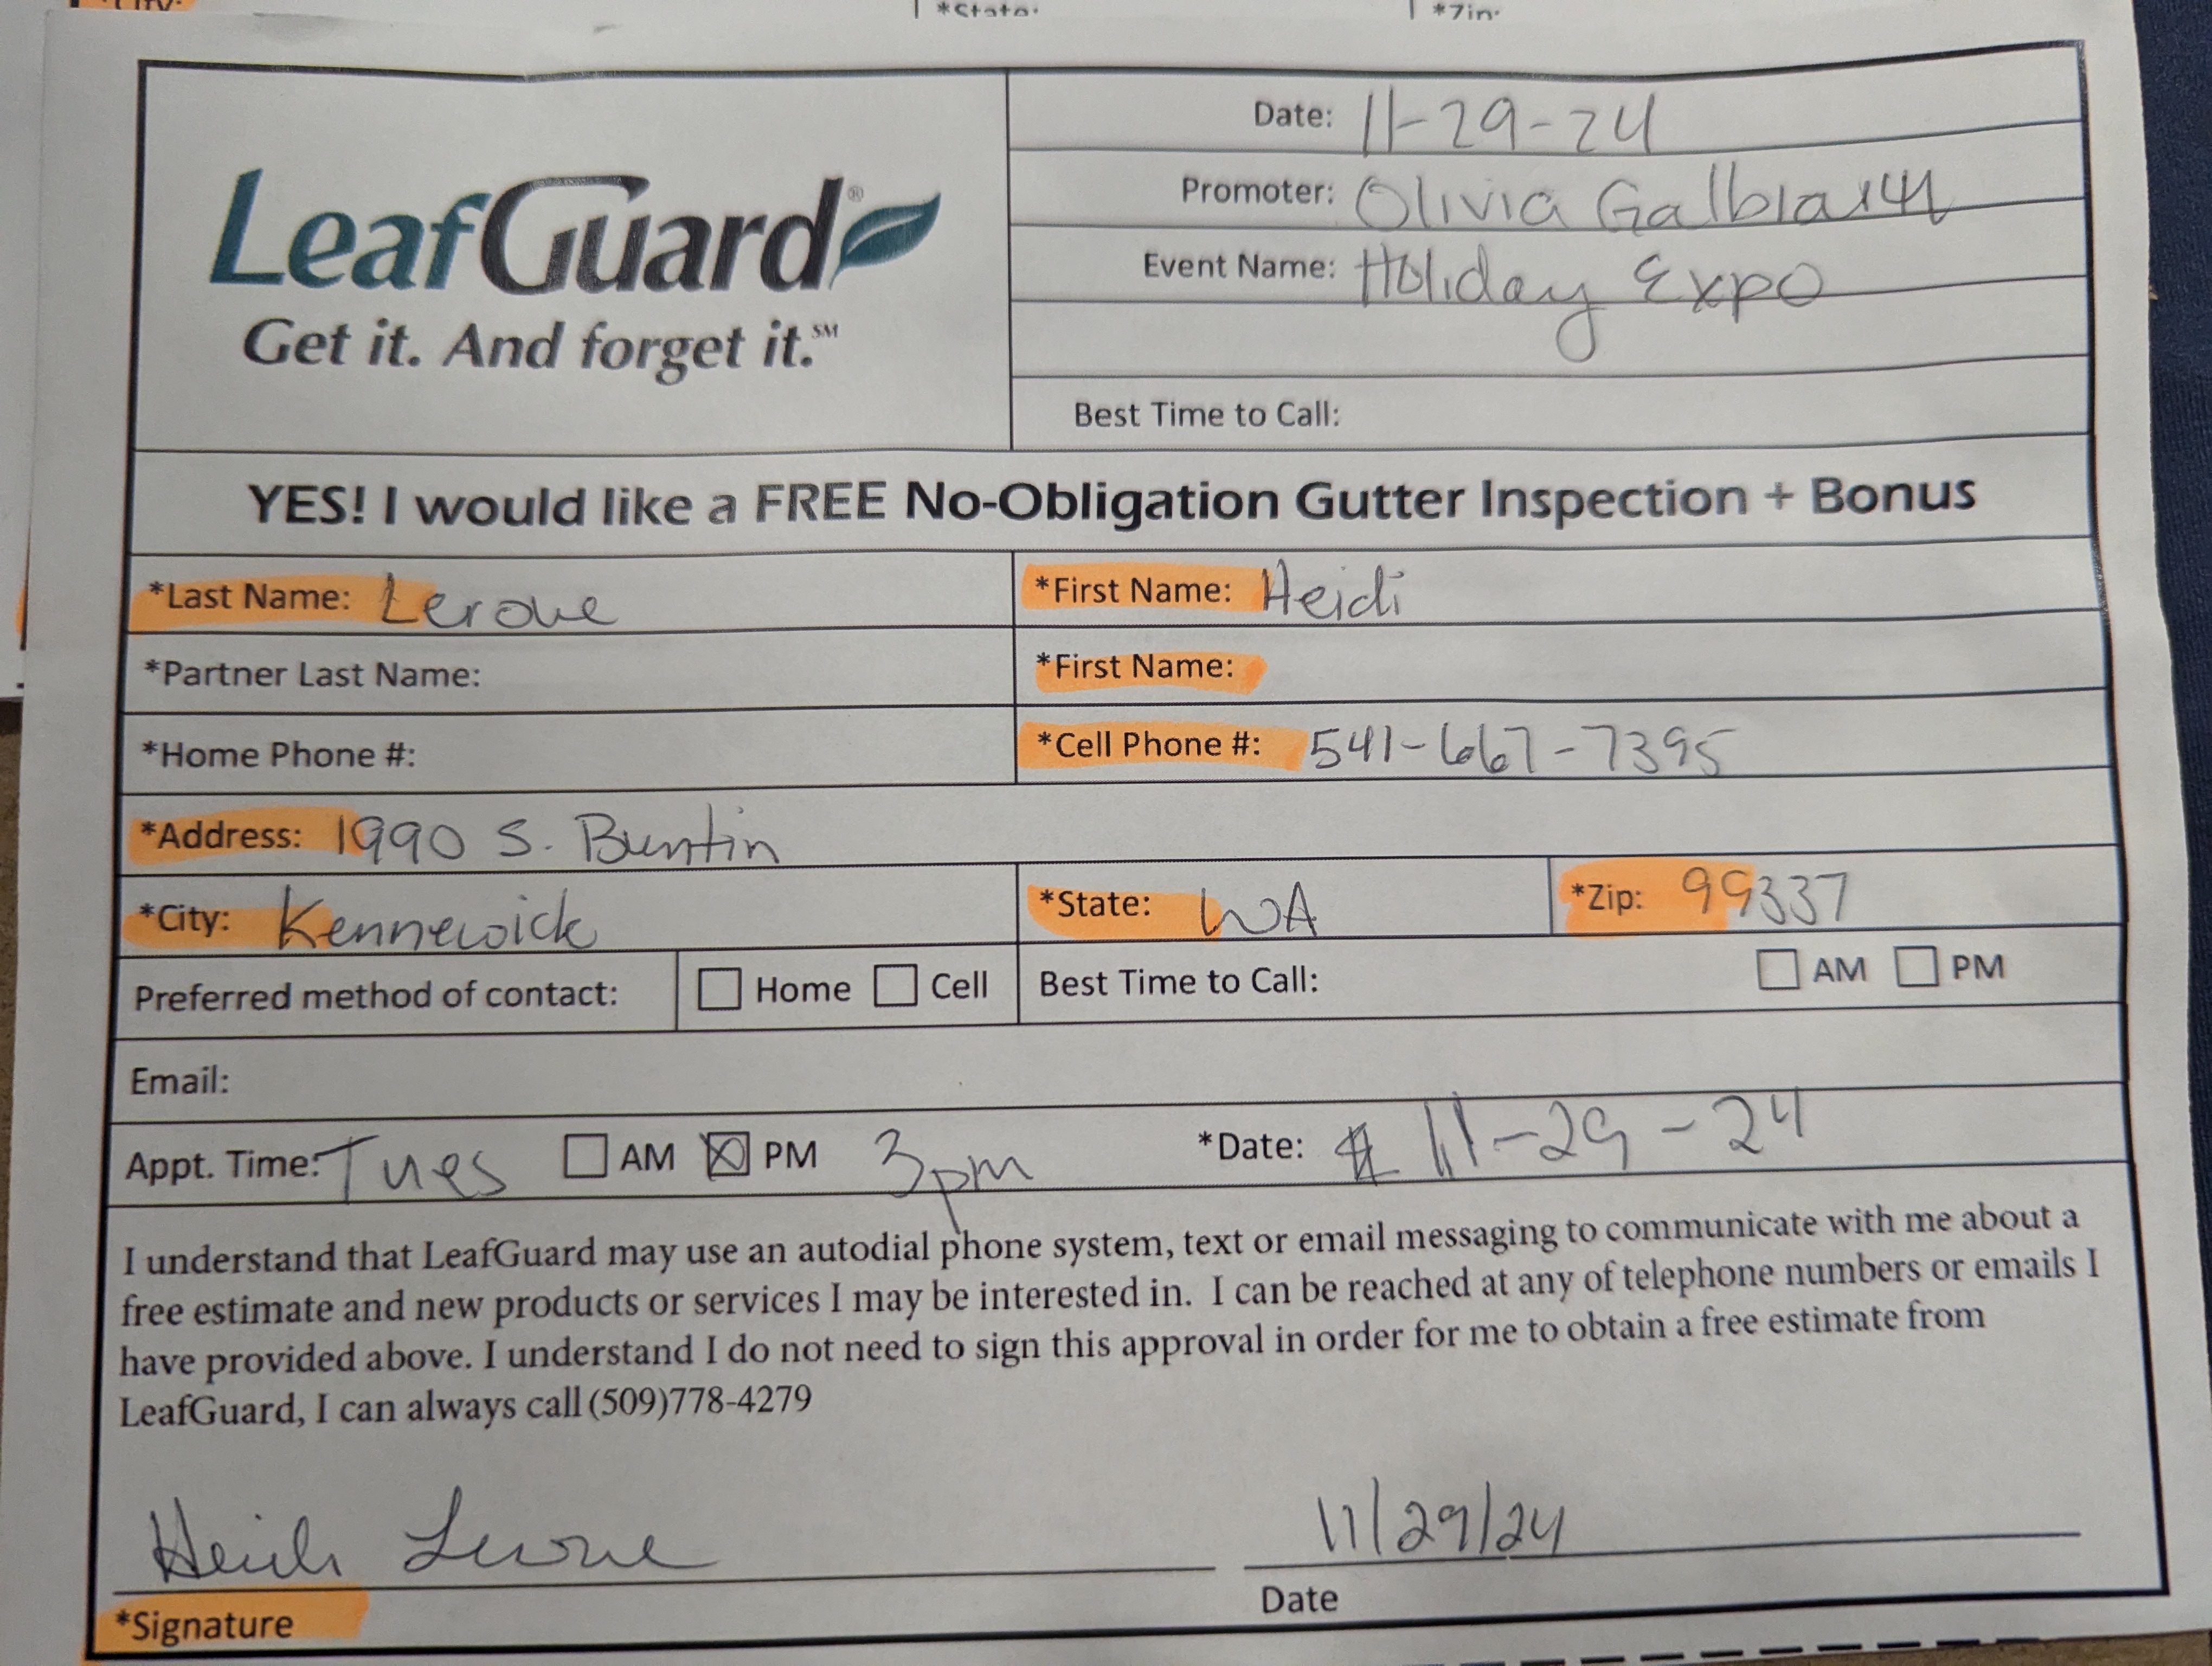 *City:
*State:
*Zip:
Date: 11-29-24
Promoter: Olivia Galbraith
LeafGuard®
Event Name: Holiday Expo
Get it. And forget it.℠
Best Time to Call:
YES! I would like a FREE No-Obligation Gutter Inspection + Bonus
*Last Name: Leroue *First Name: Heidi
*Partner Last Name: *First Name:
*Home Phone #: *Cell Phone #: 541-667-7395
*Address: 1990 S. Buntin
*City: Kennewick *State: WA *Zip: 99337
Preferred method of contact: Home Cell Best Time to Call: AM PM
Email:
Appt. Time: Tues AM PM 3pm *Date: 11-29-24
I understand that LeafGuard may use an autodial phone system, text or email messaging to communicate with me about a
free estimate and new products or services I may be interested in. I can be reached at any of telephone numbers or emails I
have provided above. I understand I do not need to sign this approval in order for me to obtain a free estimate from
LeafGuard, I can always call (509)778-4279
Heidi Leroue 11/29/24
*Signature Date